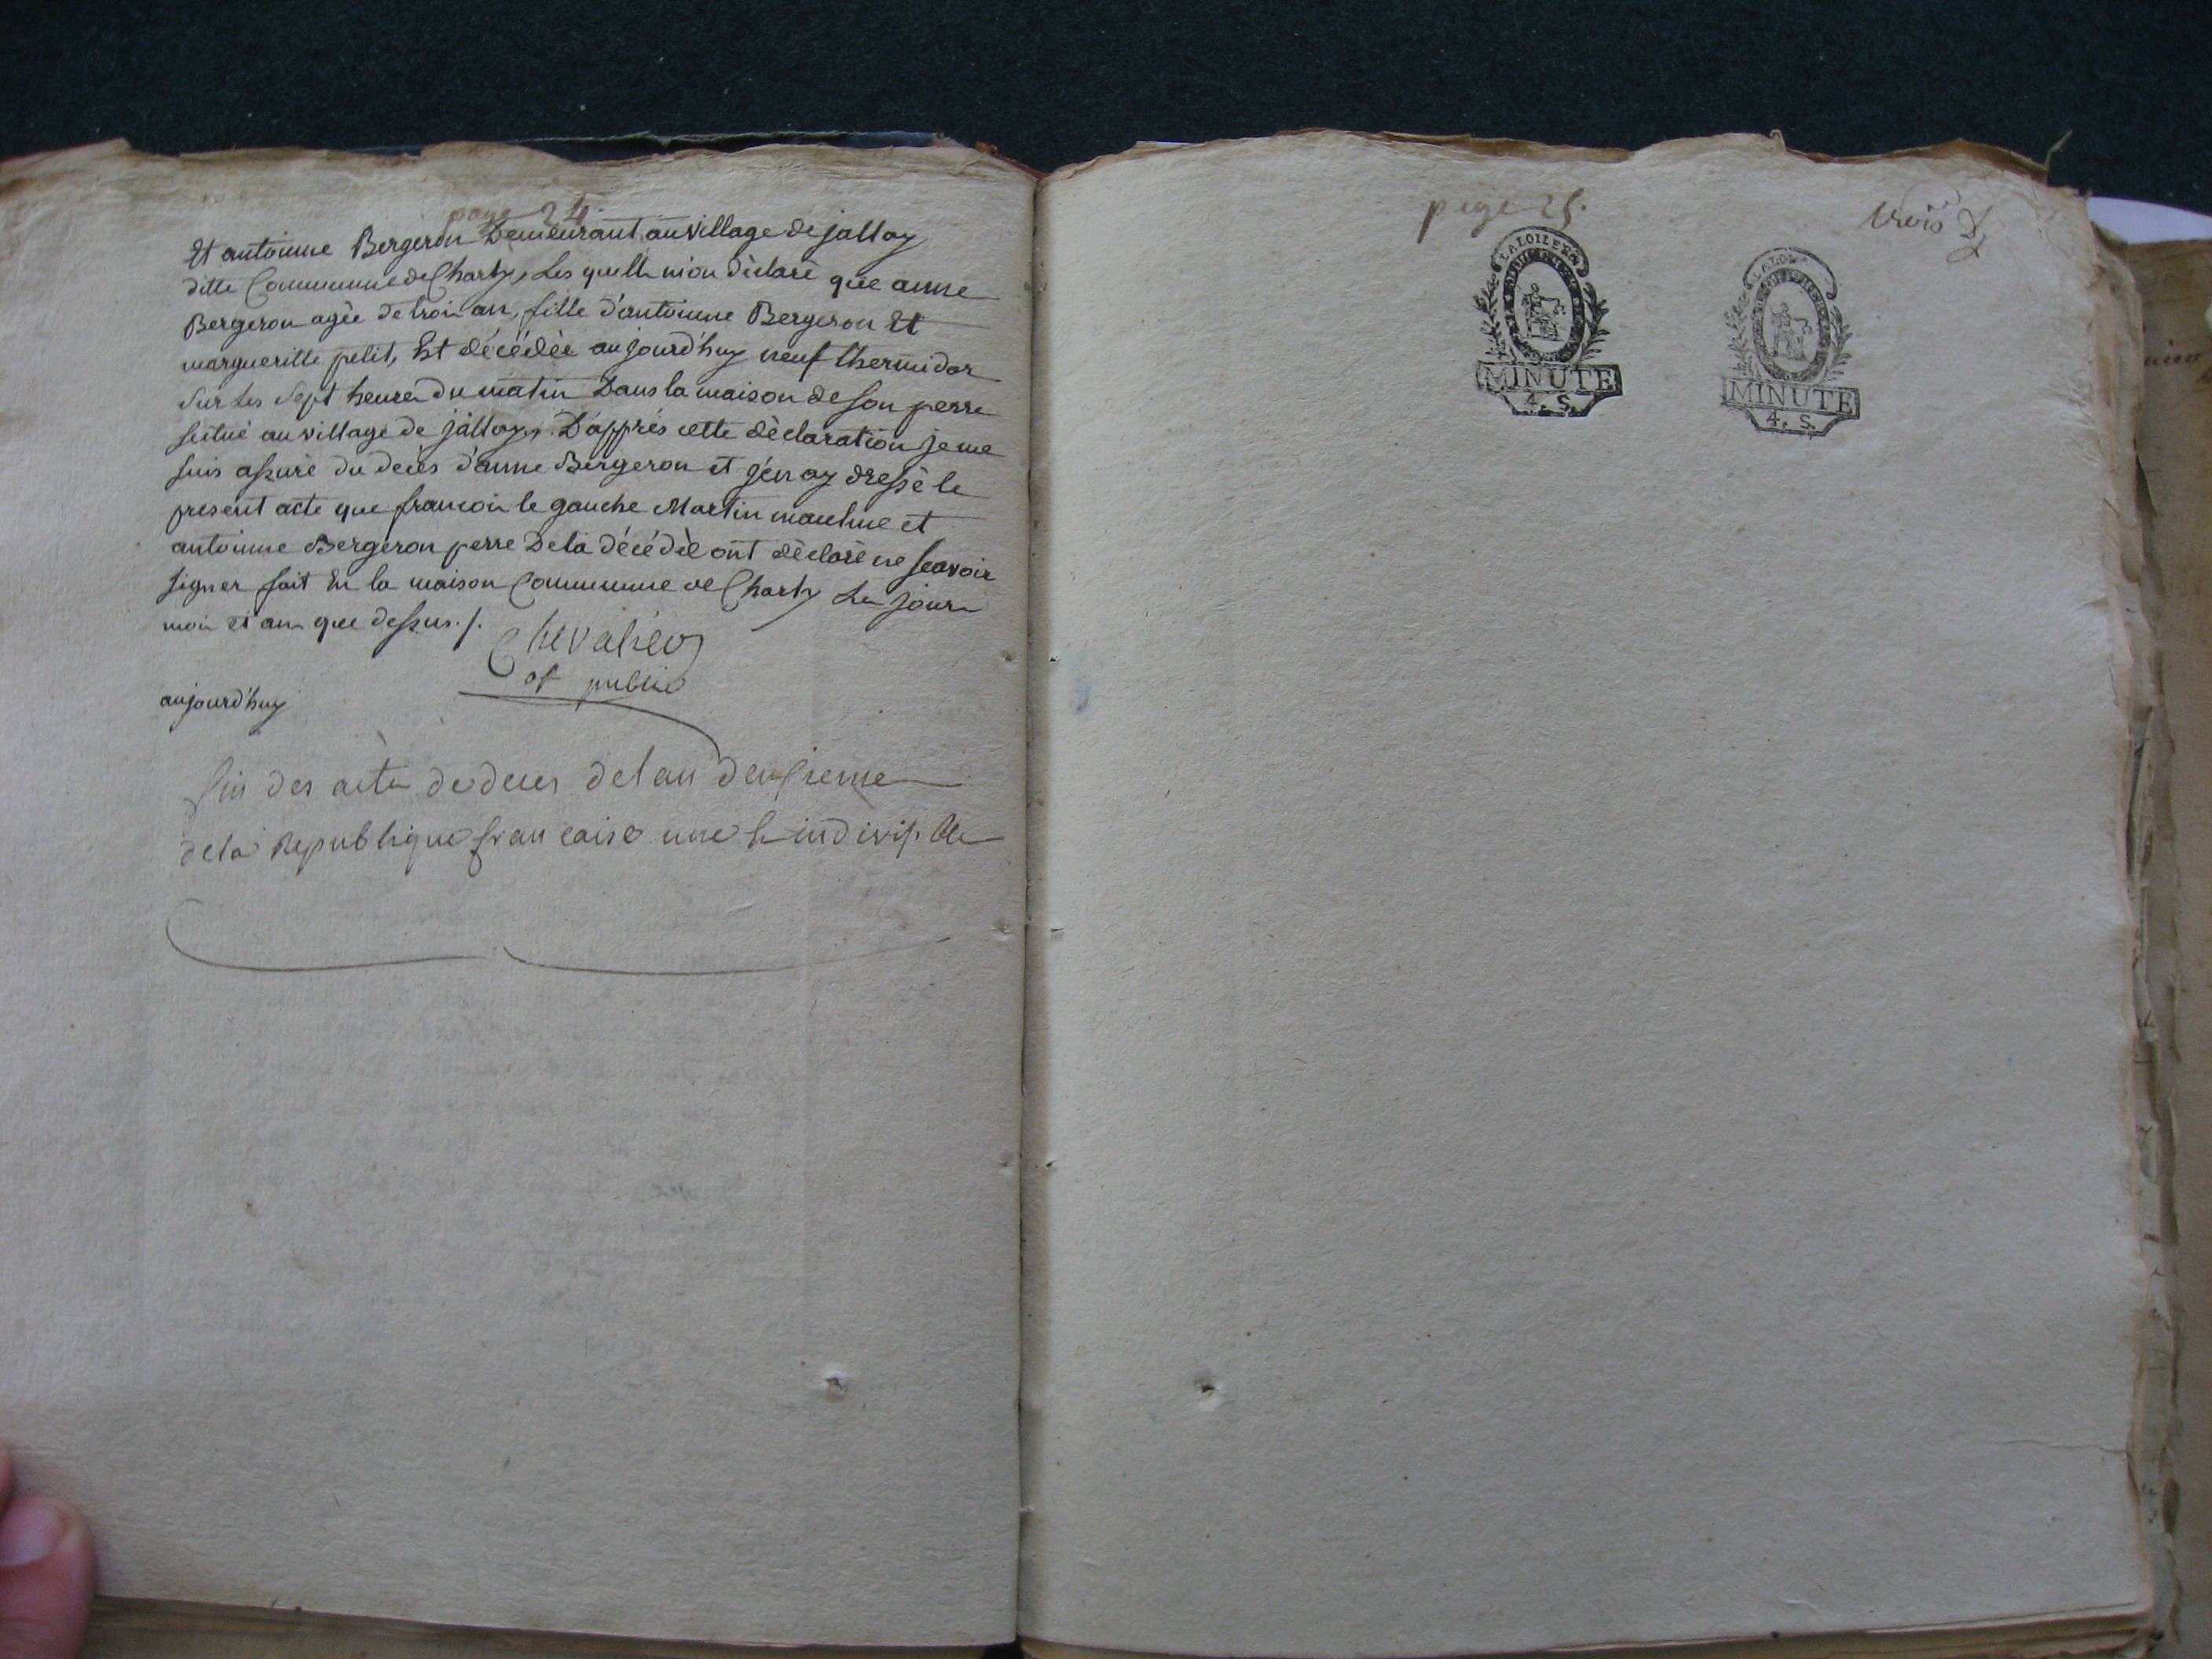 page 24.
Et antoinne Bergeron Demeurant au village de jalloy
ditte Commune de Charly, Les quelle m'on déclaré que anne
Bergeron agée de troi an, fille d'antoinne Bergeron Et
margueritte petit, Est décédée aujourd'huy neuf thermidor
Sur Les Sept heure du matin Dans la maison de son perre
scitué au village de jalloy. D'apprés cette déclaration je me
suis assuré du deces d'anne Bergeron et j'en ay dressé le
present acte que francoi le gauche Martin et
antoinne Bergeron perre De la décédée ont déclaré ne scavoir
signer fait En la maison Commune de Charly Le jour
moi et an que dessus./.
Chevalier
of public
aujourd'huy
fin des acte de deces de l an deuxieme
de la Republique francaise une & indivisible
page 25.
trois
LA LOI LE R
MINUTE
4. S.
LA LOI
MINUTE
4. S.